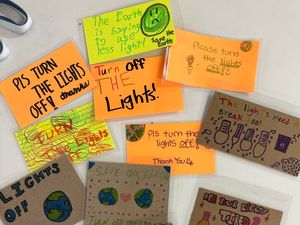 The Earth
is saying
to use
less light!
Save the
Earth
PLS TURN
THE LIGHTS
OFF! thanks!
Turn OFF
THE
Lights!
Please turn
the lights
off!
The lights Need a
Break too!
Pls turn the
lights off!
Thank You
TURN
Lights
LIGHTS
OFF
SAVE THE EARTH
LIGHTS